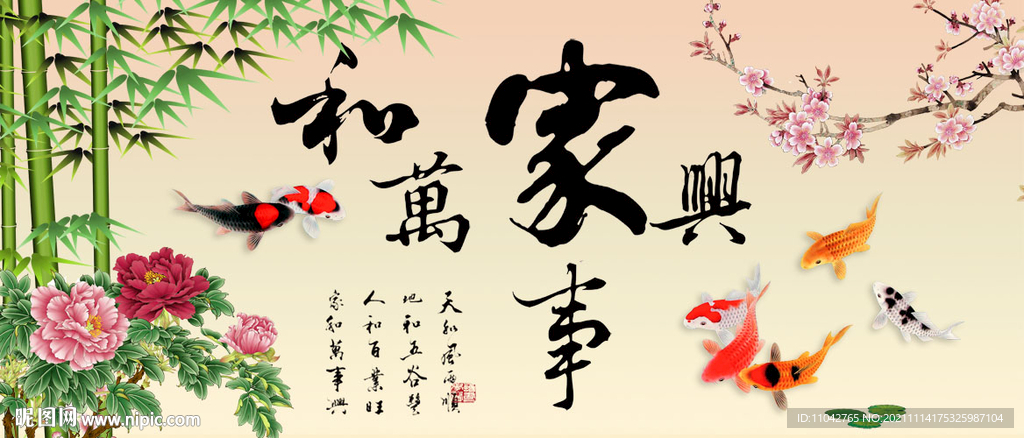 家和萬事興
天和風雨順
地和五谷豐
人和百業旺
家和萬事興
昵图网 www.nipic.com
ID:11042765 NO:20211114175325987104